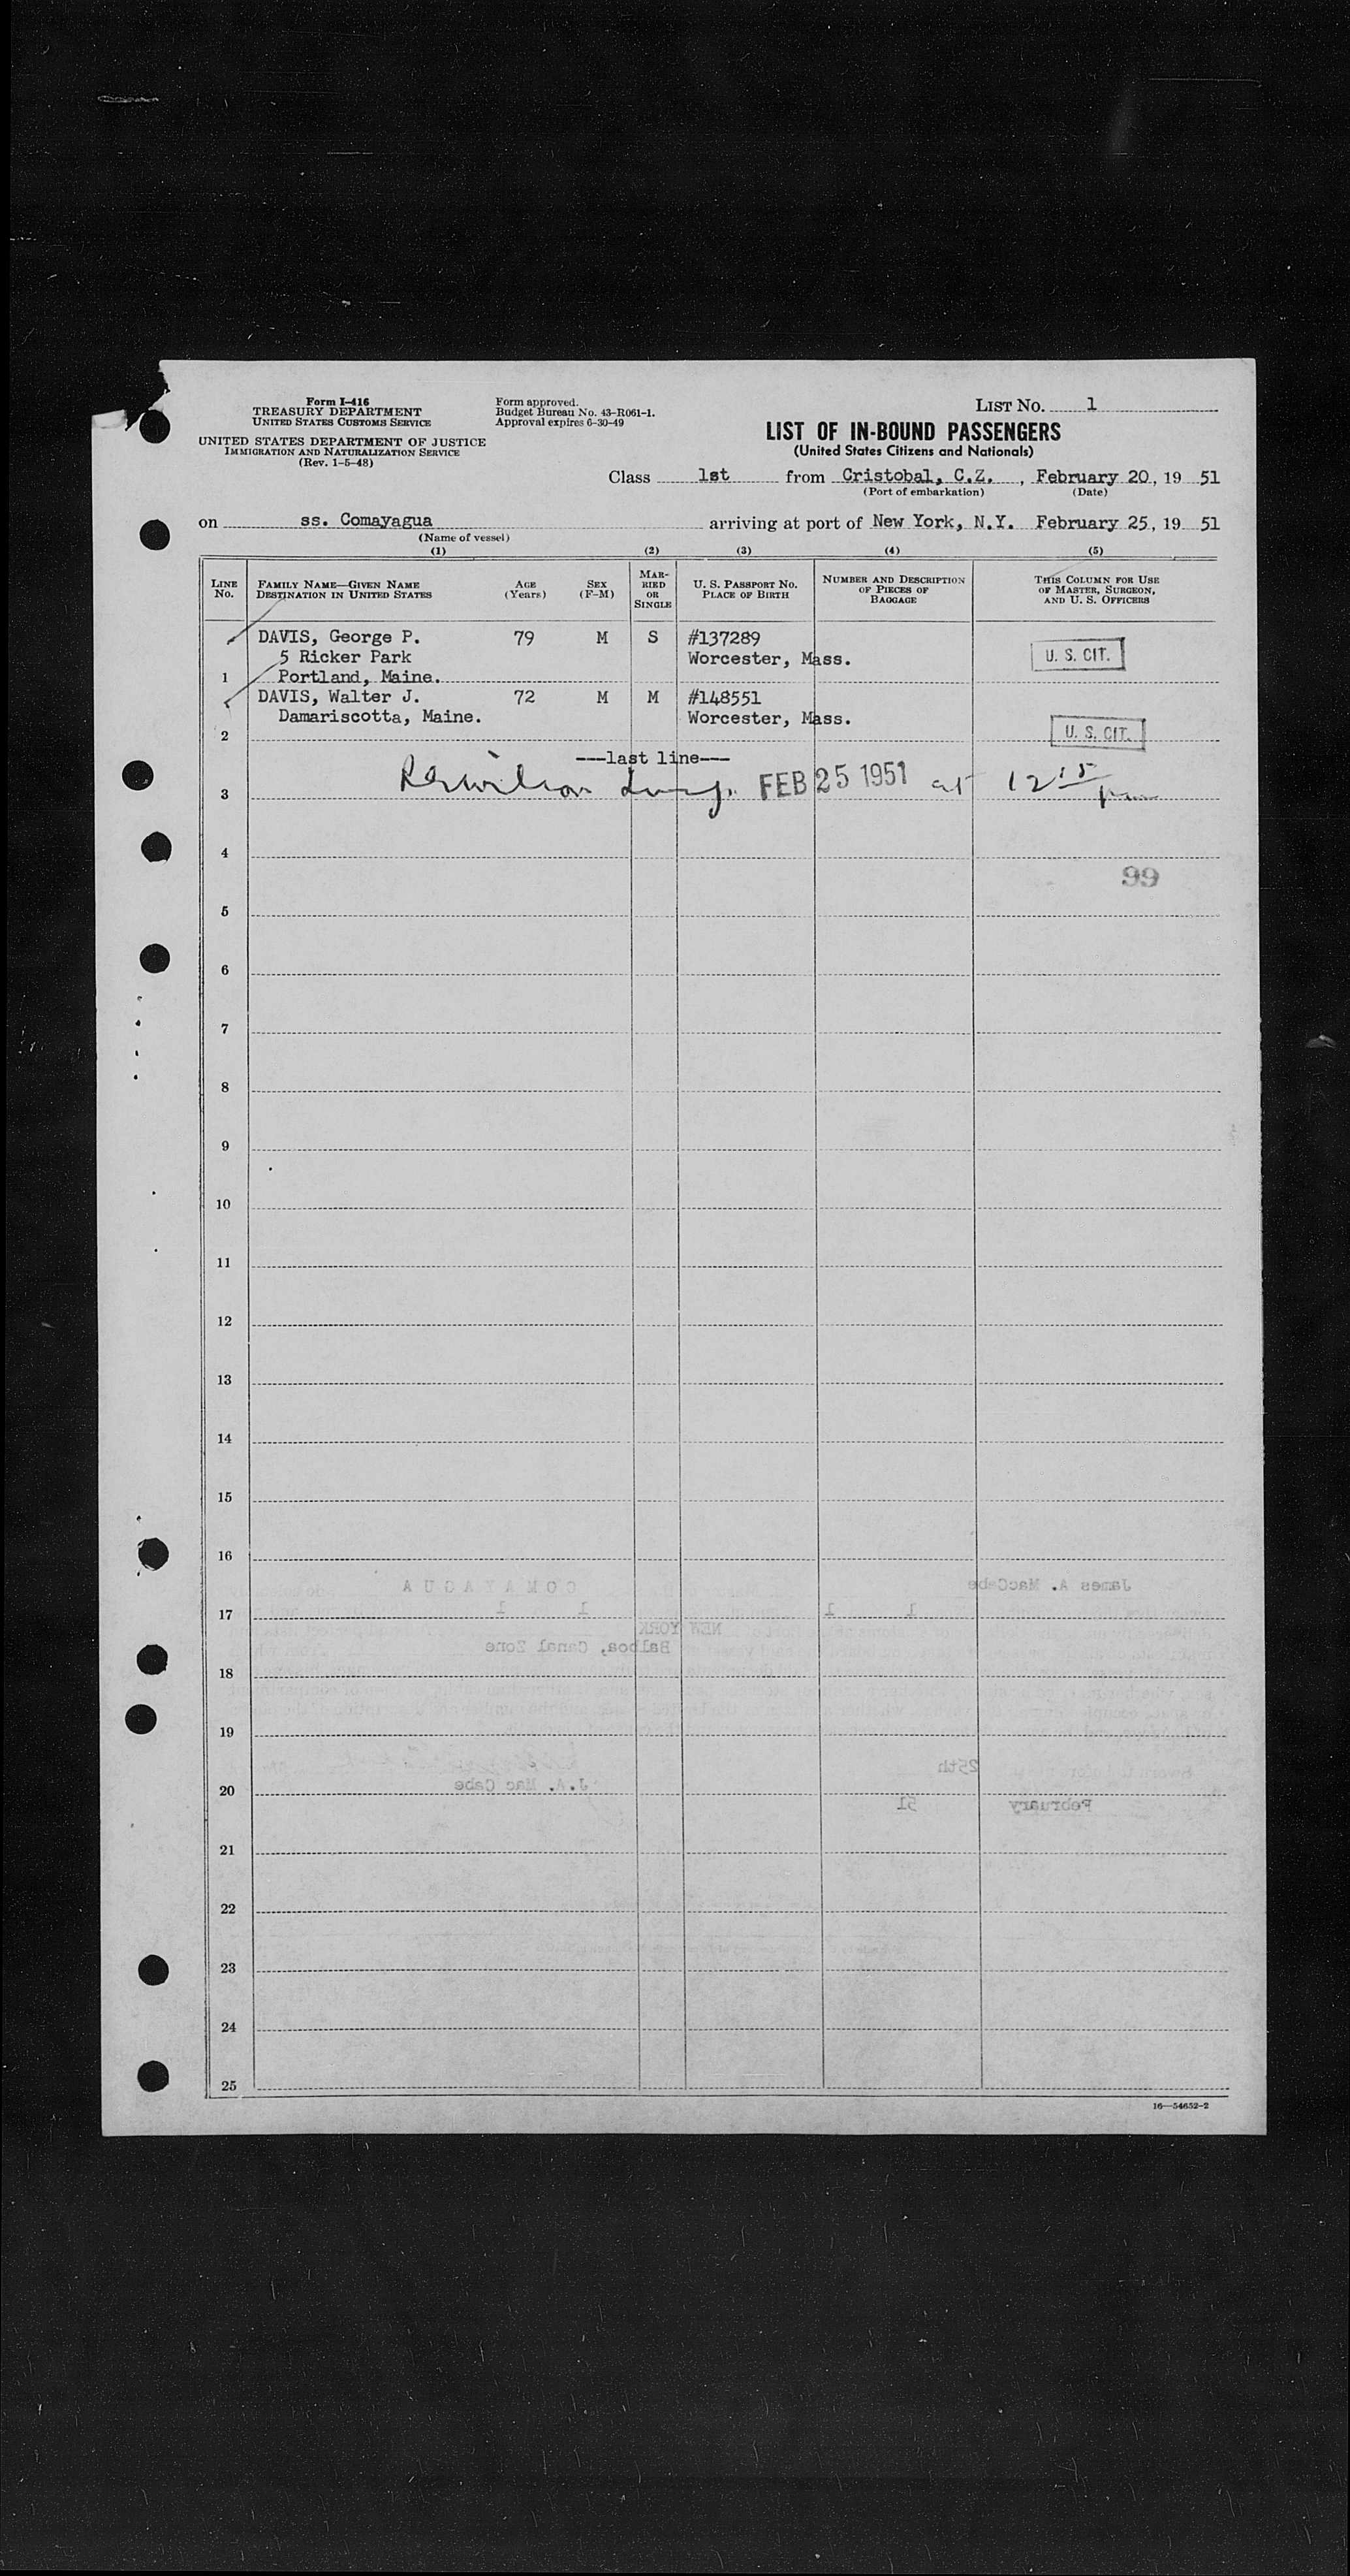 Form I-416
TREASURY DEPARTMENT
UNITED STATES CUSTOMS SERVICE
UNITED STATES DEPARTMENT OF JUSTICE
IMMIGRATION AND NATURALIZATION SERVICE
(Rev. 1-5-48)
Form approved.
Budget Bureau No. 43-R061-1.
Approval expires 6-30-49
LIST No. 1
LIST OF IN-BOUND PASSENGERS
(United States Citizens and Nationals)
Class 1st from Cristobal, C.Z., February 20, 19 51
(Port of embarkation) (Date)
on ss. Comayagua arriving at port of New York, N.Y. February 25, 19 51
(Name of vessel)
(1) (2) (3) (4) (5)
LINE No. FAMILY NAME—GIVEN NAME DESTINATION IN UNITED STATES AGE (Years) SEX (F-M) MARRIED OR SINGLE U. S. PASSPORT NO. PLACE OF BIRTH NUMBER AND DESCRIPTION OF PIECES OF BAGGAGE THIS COLUMN FOR USE OF MASTER, SURGEON, AND U. S. OFFICERS
DAVIS, George P. 79 M S #137289
5 Ricker Park Worcester, Mass. U. S. CIT.
1 Portland, Maine.
DAVIS, Walter J. 72 M M #148551
Damariscotta, Maine. Worcester, Mass.
2 U. S. CIT.
---last line---
3 FEB 25 1951 at 12 15 pm
4
99
5
6
7
8
9
10
11
12
13
14
15
16
COMAYAGUA James A. MacCabe
17 1 1 1 1
NEW YORK
Balboa, Canal Zone
18
19
25th
20 J.A. Mac Cabe
February 51
21
22
23
24
25
16—54652-2